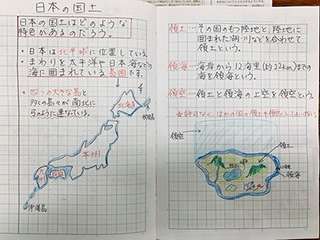 日本の国土
日本の国土はどのような
特色があるのだろう。
・日本は北半球に位置している。
・まわりを太平洋や日本海などの
海に囲まれている島国だ。
・四つの大きな島と
多くの島々が南北に
弓のように連なっている。
北海道
本州
沖縄島
領土…その国のもつ陸地と、陸地に
囲まれた湖、川などを合わせて
領土という。
領海…海岸から12海里(約22km)までの
海を領海という。
領空…領土と領海の上空を領空という。
領空
領土
領海